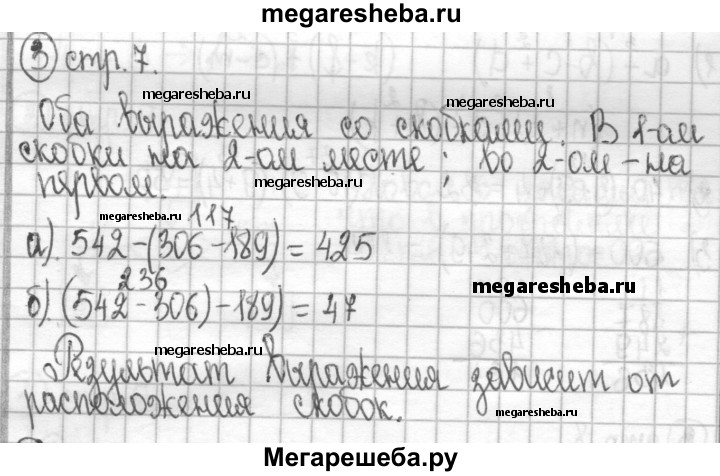 megaresheba.ru
3 стр. 7.
megaresheba.ru
Оба выражения со скобками. В 1-ом
megaresheba.ru
скобки на 2-ом месте; во 2-ом - на
первом.
megaresheba.ru
megaresheba.ru 117
а). 542 - (306 - 189) = 425
236
megaresheba.ru
б) (542 - 306) - 189) = 47
megaresheba.ru
Результат выражения зависит от
расположения скобок.
megaresheba.ru
Мегарешеба.ру